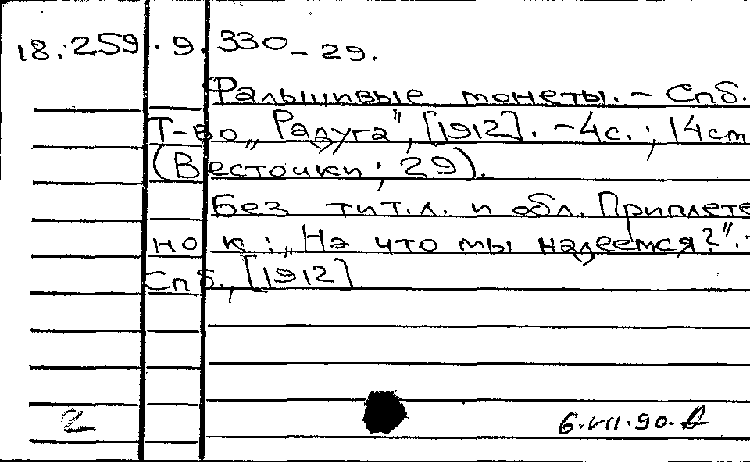 18.259.9.330-29.
Фальшивые монеты. - Спб.
Т-во „Радуга", [1912]. - 4с.; 14см
(Весточки; 29).
Без тит.л. и обл. Приплете
но к: „На что мы надеемся?".-
Спб., [1912]
2
6.VII.90.